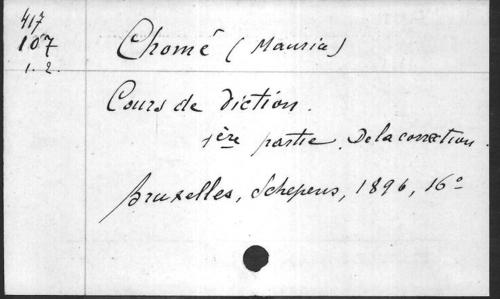 417
107
1. 2.
Chomé (Maurice)
Cours de Diction.
1ère partie. De la correction.
Bruxelles, Schepens, 1896, 16°